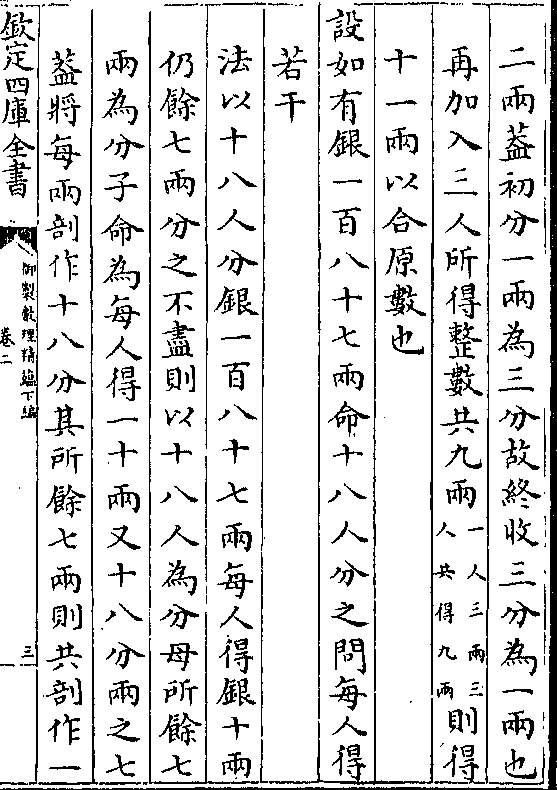 二兩葢初分一兩為三分故終收三分為一兩也
再加入三人所得整數共九兩一人三兩三人共得九兩則得
十一兩以合原數也
設如有銀一百八十七兩命十八人分之問每人得
若干
法以十八人分銀一百八十七兩每人得銀十兩
仍餘七兩分之不盡則以十八人為分母所餘七
兩為分子命為每人得一十兩又十八分兩之七
葢將每兩剖作十八分其所餘七兩則共剖作一
欽定四庫全書
御製數理精蘊下編
卷二
三